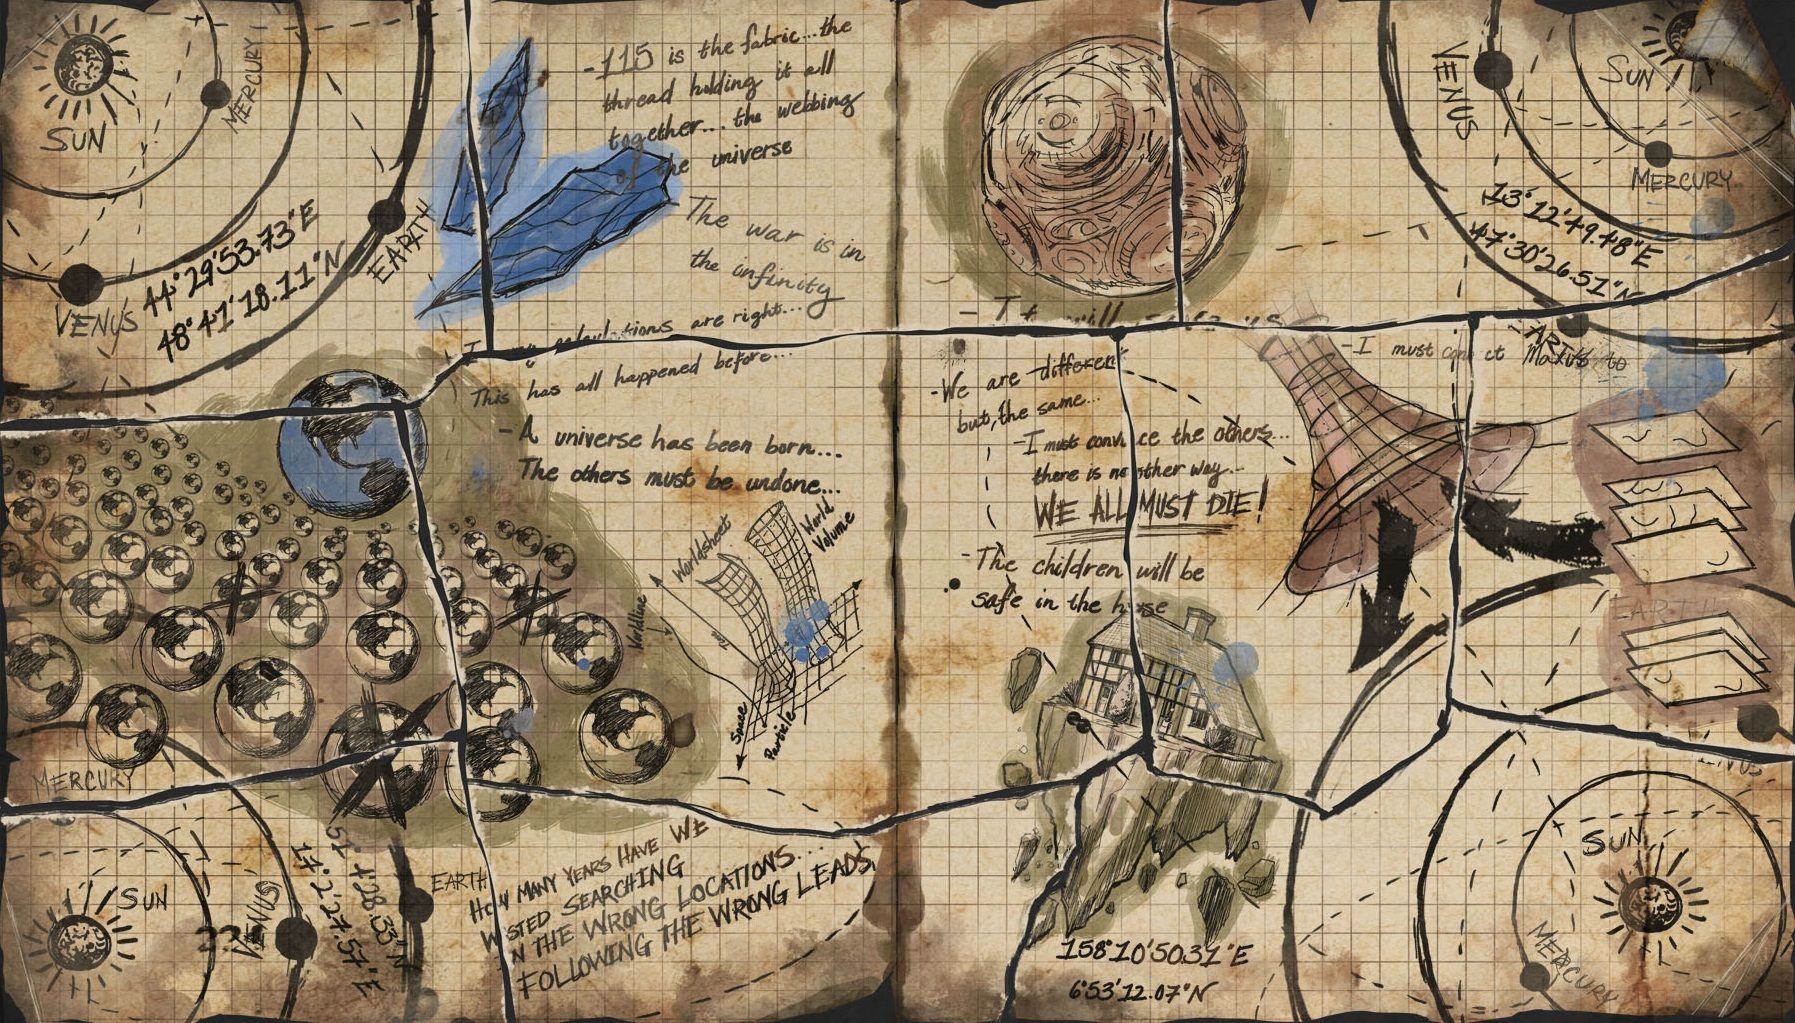 SUN
MERCURY
VENUS
EARTH
44°29'53.73"E
48°41'18.11"N
-115 is the fabric...the
thread holding it all
together... the webbing
of the universe
The war is in
the infinity
are right...
This has all happened before...
-A universe has been born...
The others must be undone...
Worldsheet
World
Volume
Worldline
Space
Particle
MERCURY
SUN
VENUS
EARTH
51°4'28.33"N
14°2'27.57"E
HOW MANY YEARS HAVE WE
W STED SEARCHING
N THE WRONG LOCATIONS...
FOLLOWING THE WRONG LEADS
VENUS
SUN
MERCURY
13°12'49.48"E
47°30'26.51"N
-We are different
but, the same...
-I must conv ce the others...
there is no other way...
WE ALL MUST DIE!
-The children will be
safe in the h se
-I must
EARTH
158°10'50.31"E
6°53'12.07"N
SUN
MERCURY